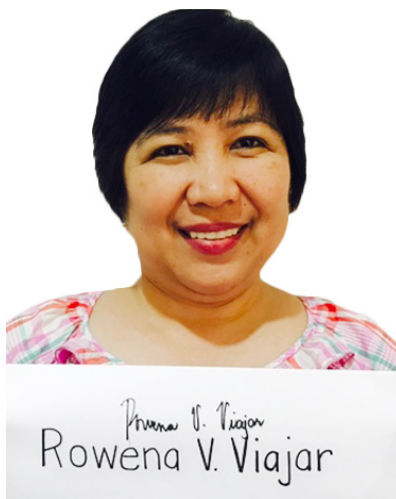 Rowena V. Viajar
Rowena V. Viajar